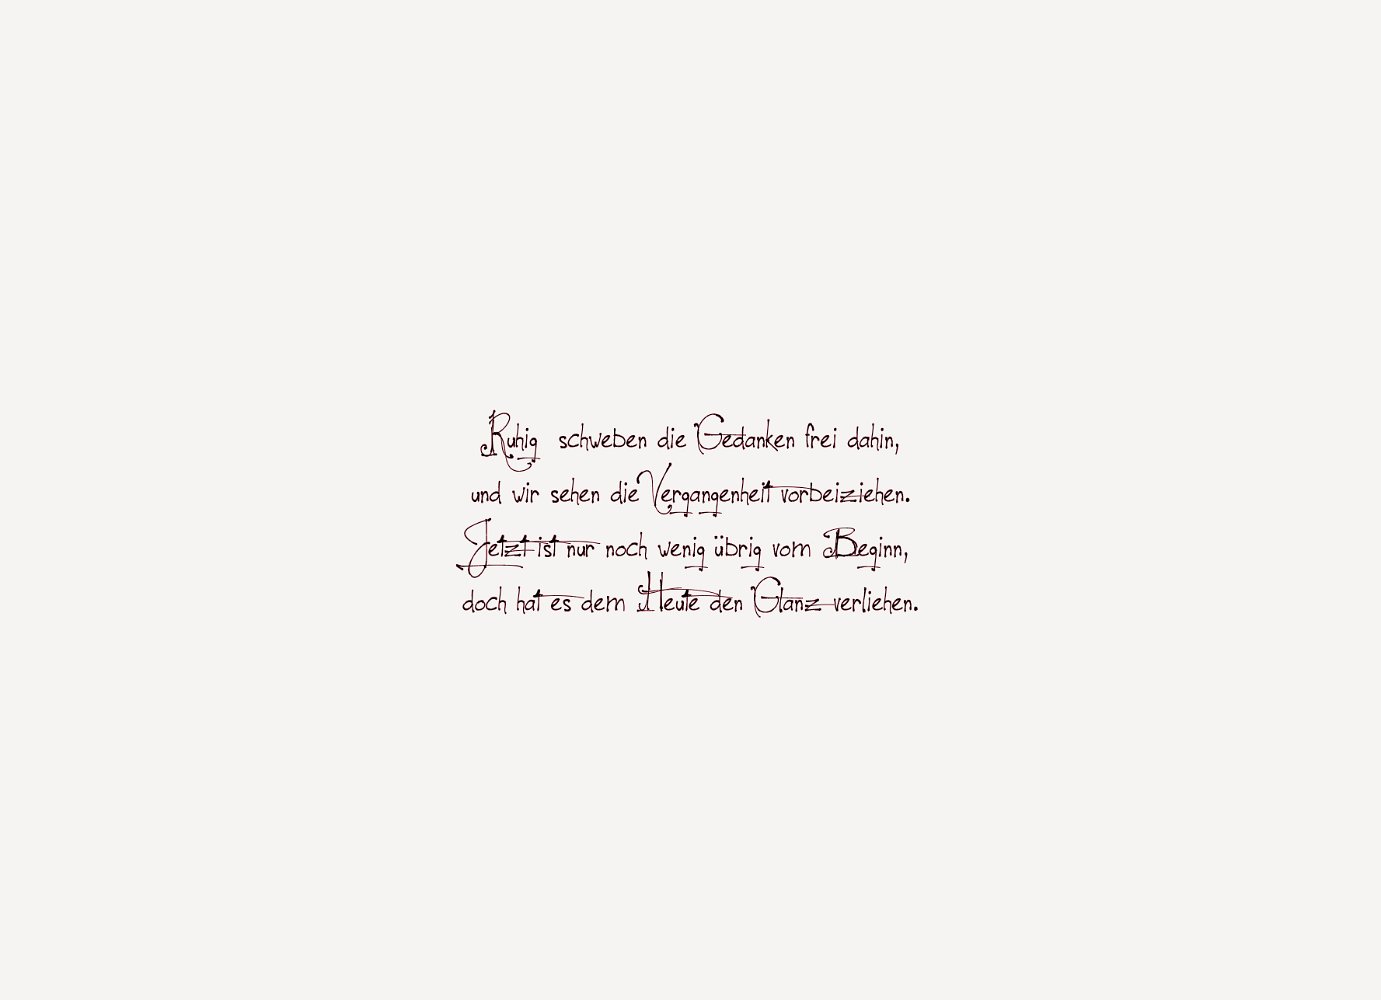 Ruhig schweben die Gedanken frei dahin,
und wir sehen die Vergangenheit vorbeiziehen.
Jetzt ist nur noch wenig übrig vom Beginn,
doch hat es dem Heute den Glanz verliehen.